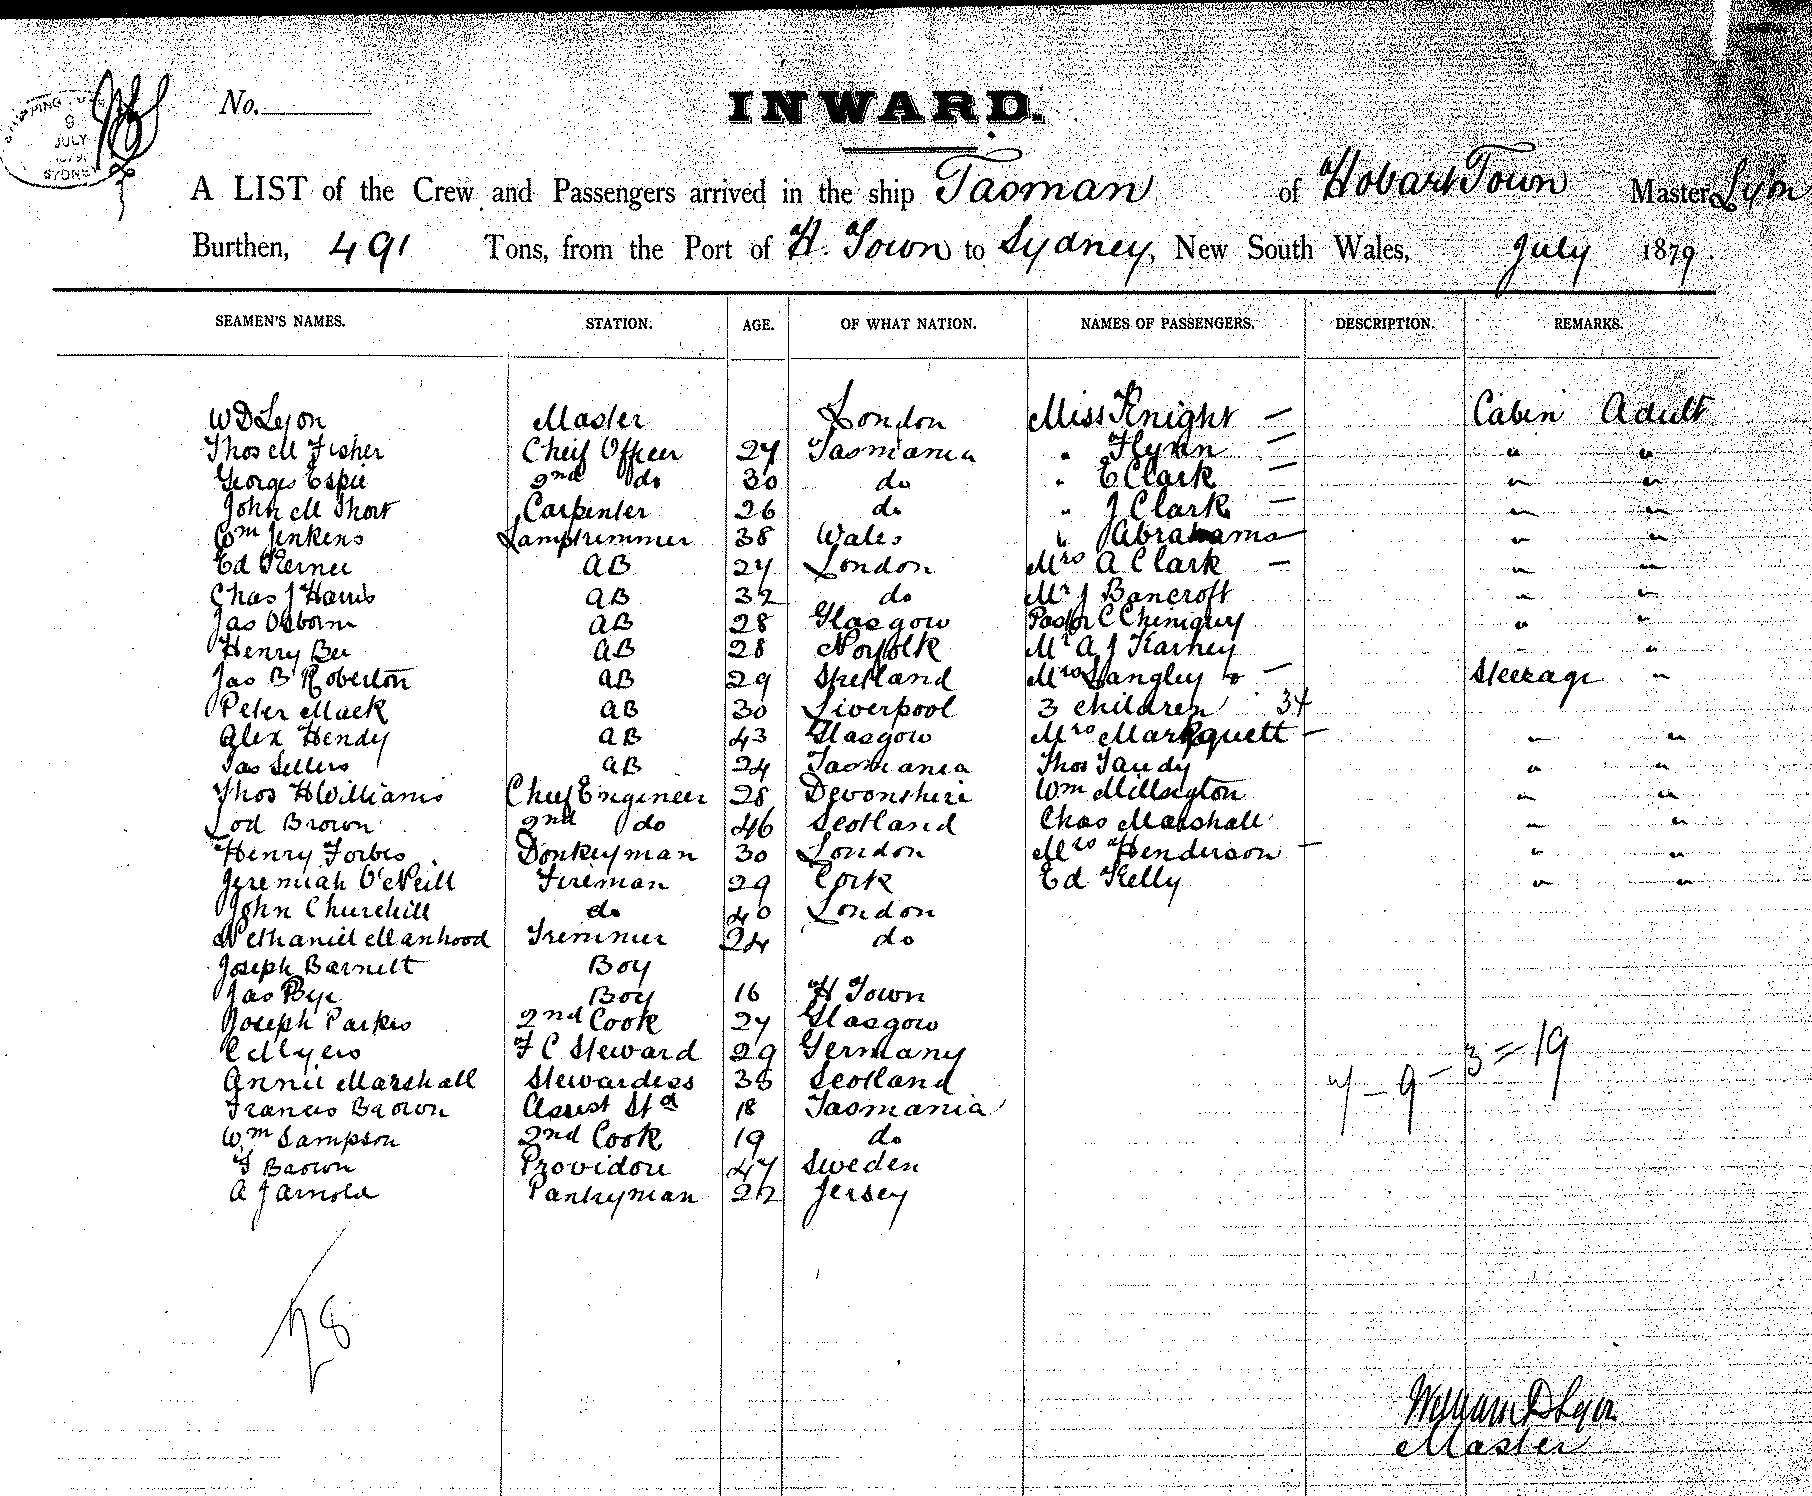 SHIPPING
9
JULY
1879
SYDNEY
No.
INWARD.
A LIST of the Crew and Passengers arrived in the ship Tasman of Hobart Town Master Lyon
Burthen, 491 Tons, from the Port of H. Town to Sydney, New South Wales, July 1879.
SEAMEN'S NAMES. STATION. AGE. OF WHAT NATION. NAMES OF PASSENGERS. DESCRIPTION. REMARKS.
W D Lyon Master London Miss Knight — Cabin Adult
Thos M Fisher Cheif Officer 27 Tasmania " Flynn — " "
Georges Espie 2nd do 30 do " E Clark — " "
John M Short Carpenter 26 do " J Clark — " "
Wm Jenkens Lamptrimmer 38 Wales " Abrahams — " "
Ed Kerner AB 27 London Mrs A Clark — " "
Chas J Harris AB 32 do Mr J Bancroft " "
Jas Osborn AB 28 Glasgow Pastor C Chiniquy " "
Henry Bee AB 28 Norfolk Mr A J Karney "
Jas B Roberton AB 29 Shetland Mrs Langley & — Steerage "
Peter Mack AB 30 Liverpool 3 children 3+
Alex Hendy AB 43 Glasgow Mrs Markquett — " "
Jas Sellers AB 24 Tasmania Thos Tandy " "
Thos H Williams Chief Engineer 28 Devonshire Wm Millington " "
Lod Brown 2nd do 46 Scotland Chas Marshall " "
Henry Forbes Donkeyman 30 London Mrs Henderson — " "
Jeremiah O'Neill Fireman 29 Cork Ed Kelly " "
John Churchill do 40 London
Nethaniel Manhood Tremmer 24 do
Joseph Barnett Boy
Jas Pye Boy 16 H Town
Joseph Parkes 2nd Cook 27 Glasgow
C Myers F C Steward 29 Germany
Annie Marshall Stewardess 38 Scotland
Francis Brown Assist Std 18 Tasmania
Wm Sampson 2nd Cook 19 do
F Brown Providore 47 Sweden
A J Arnold Pantryman 22 Jersey
7 – 9 – 3 = 19
28
William D Lyon
Master